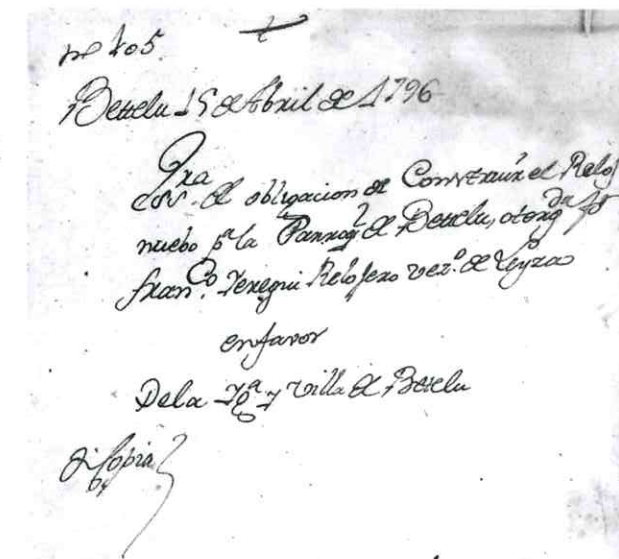 nº 405
Betelu 15 de Abril de 1796
Esra
de obligacion de Construir el Reloj
nuebo pª la Parroqˡ de Betelu, otorgda pr
franco. Yeregui Relojero vezº. de Leyza
en favor
De la Ygª y Villa de Betelu
di Copia